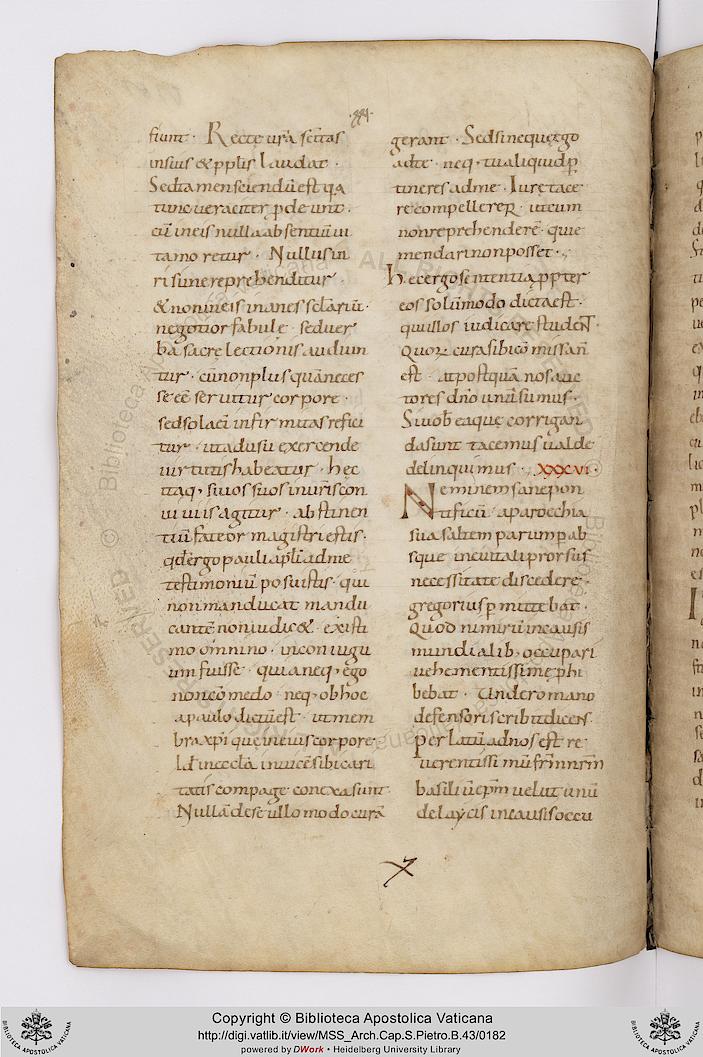 fiunt · Recte ur̄a sc̄itas
insuis & pplis laudat ·
Sed tamen sciendū est q̄a
tunc veraciter p̱deunt ·
cū in eis nulla absentiū ui
tam oretur · Nullus in
risu nereprehenditur ·
& non in eis inanes sc̄lariū·
negotior fabule, sed uer
ba sacrę lectionis audiun
tur · cū non plus quā neces
se eē seruitur corpore ·
sed solaei infirmitas refici
tur · ut ad usū exercende
uirtutis habeatur · hęc
itaq, siuos suos in ur̄is con
uiuiis agitur · abstinen
tiū fateor magistri estis ·
qd̄ ergo pauli apl̄i ad me
testimoniū posuistis · qui
non manducat mandu
cantē non iudic& · existi
mo omnino · incon iugu
um fuisse · quia neq, ego
non comedo · neq, ob hoc
a paulo dictū est · ut mem
bra xp̄i quę in eius corpore·
Id ÷ in eccl̄a inuicē sibi cari
tatis compage conexa sunt·
Nullā de se ullo modo curā
gerant · Sed sine queˈ ego
ad te · neq · tu aliquid p̱
tineres ad me · Iure tace
re compellerer · ut eum
non reprehenderē · quie
mendari non posset ·
hęc ergo sententia ppter
eos solūmodo dicta est ·
qui illos iudicare student
quorū cura sibi cōmissa n̄
est · at postquā nos auc
tores dn̄o unū sumus ·
Si uob̄ ea que corrigan
da sunt tacemus ualde
delinquimus · XXXVI ·
Neminem sane pon
tificū · a parochia
sua saltem parum p̱ ab
sque incuitali prorsus
necessitate discedere ·
gregorius p̱mittebat ·
Quod nimirū in causis
mundialib, occupari
uehementissimę phi
bebat · Unde romano
defensori scribit dicens·
Perlatū ad nos est re
uerentissimū frm̄ nrm̄
basiliū ep̄m uelut unū
de laycis in causis occu